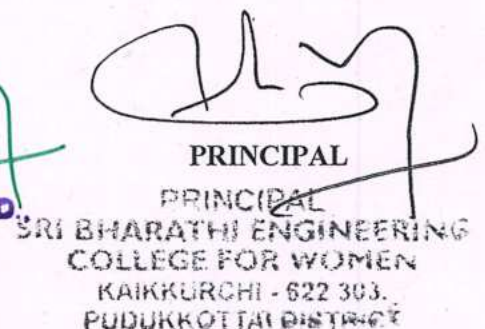 PRINCIPAL
PRINCIPAL
SRI BHARATHI ENGINEERING
COLLEGE FOR WOMEN
KAIKKURCHI - 622 303.
PUDUKKOTTAI DISTRICT